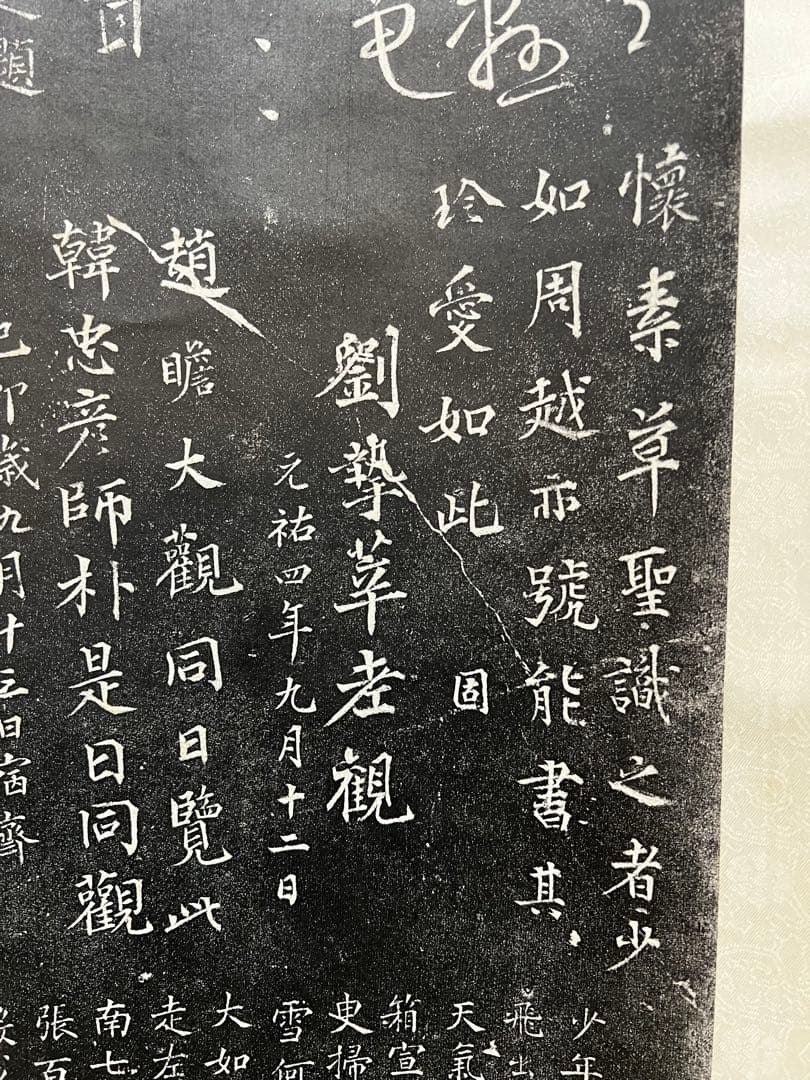 懷素草聖識之者少
如周越亦號能書其
珍愛如此 固
劉摯莘老觀
元祐四年九月十二日
趙瞻大觀同日覽此
韓忠彥師朴是日同觀
己卯歲九月十三日宿齋
題
少年
飛出
天氣
箱宣
更掃
雪何
大如
走左
南七
張百